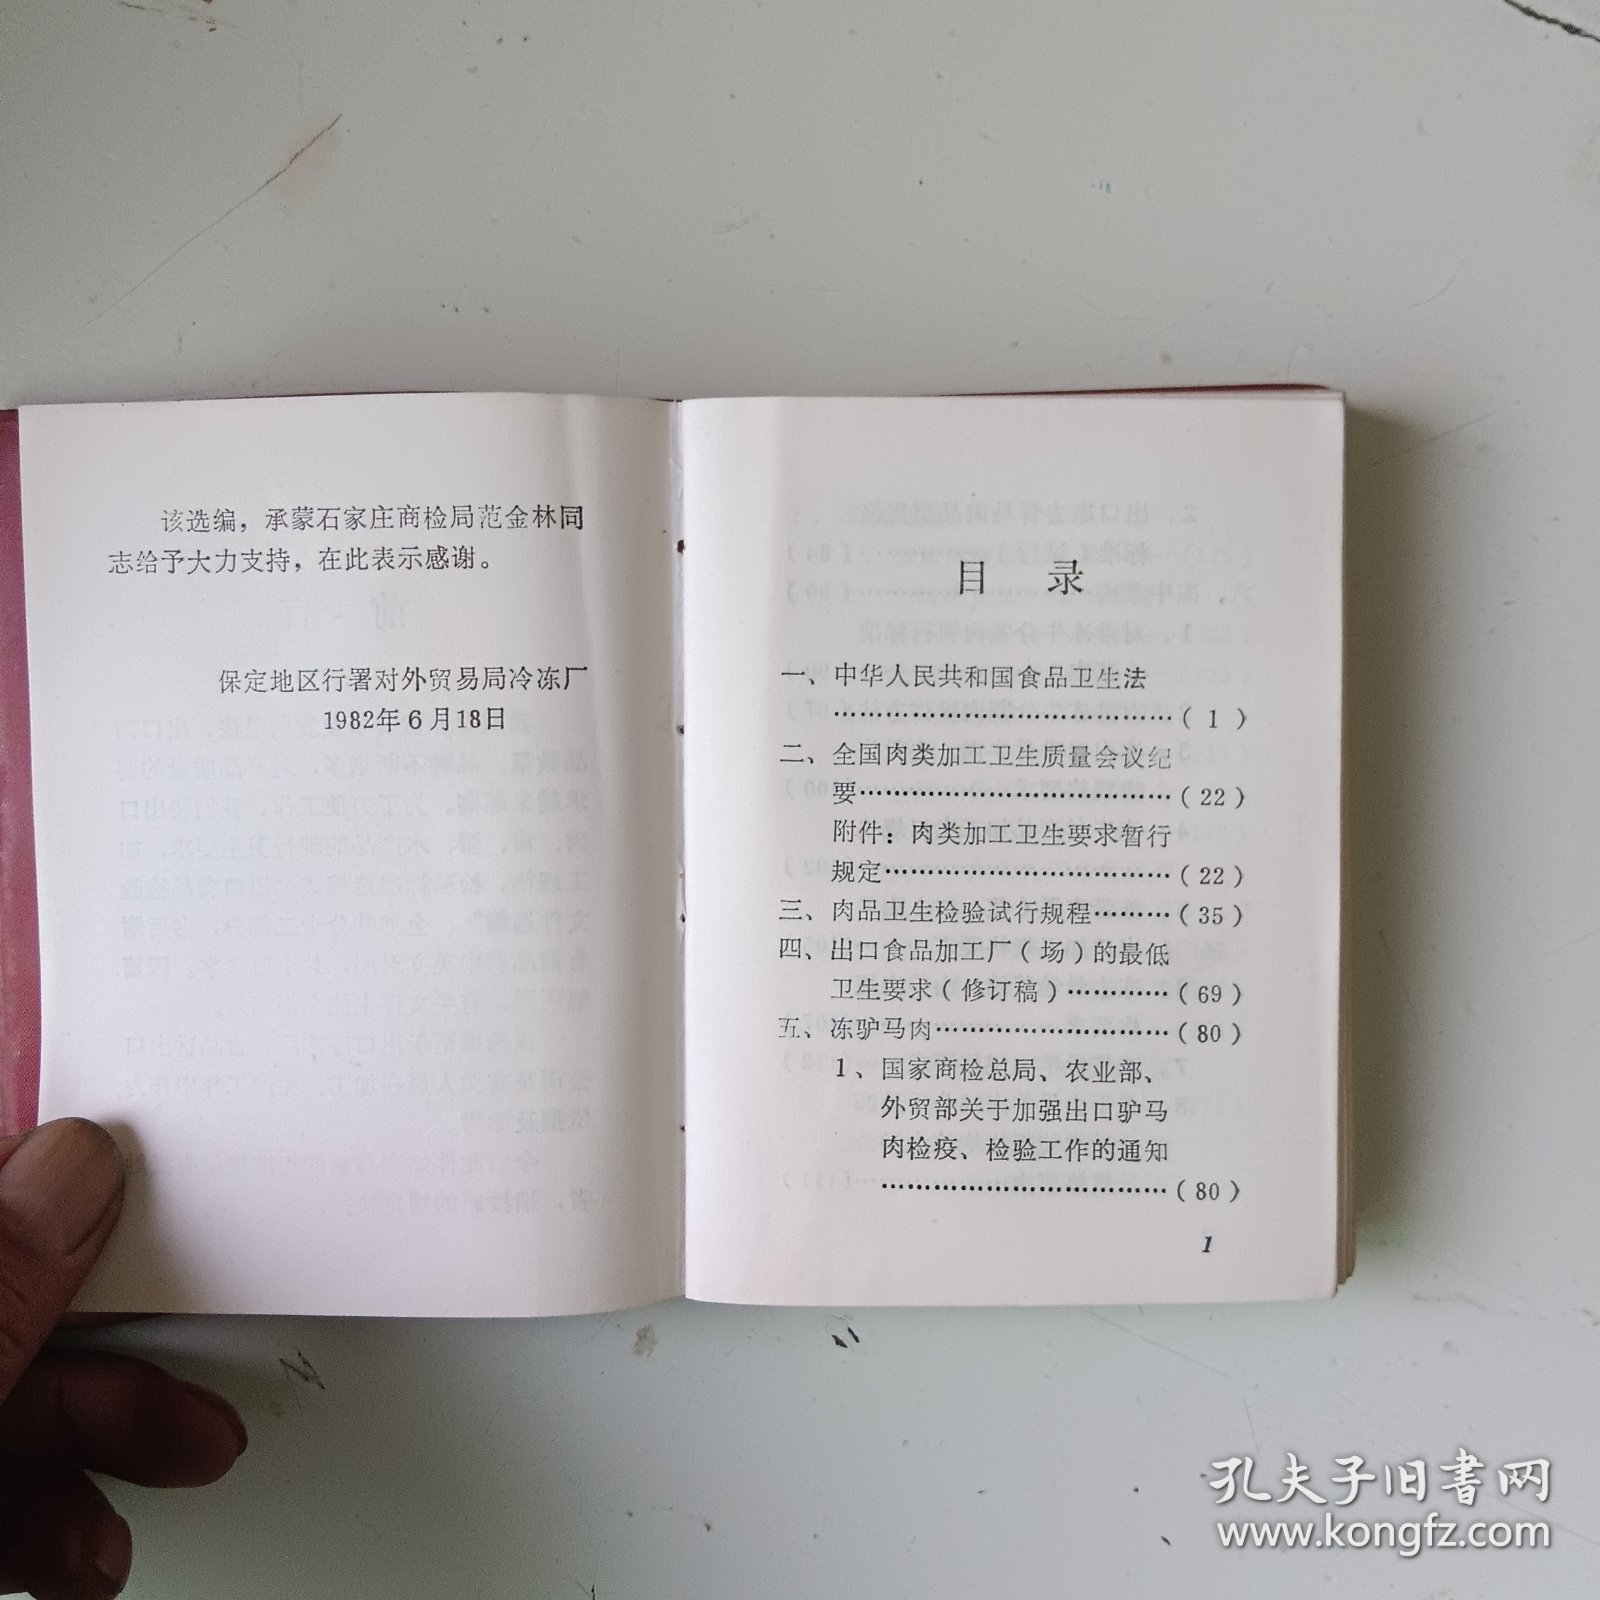 该选编，承蒙石家庄商检局范金林同
志给予大力支持，在此表示感谢。
保定地区行署对外贸易局冷冻厂
1982年6月18日
目 录
一、中华人民共和国食品卫生法
…………………………………(1)
二、全国肉类加工卫生质量会议纪
要………………………………(22)
附件：肉类加工卫生要求暂行
规定……………………………(22)
三、肉品卫生检验试行规程………(35)
四、出口食品加工厂(场)的最低
卫生要求(修订稿)…………(69)
五、冻驴马肉………………………(80)
1、国家商检总局、农业部、
外贸部关于加强出口驴马
肉检疫、检验工作的通知
……………………………(80)
1
孔夫子旧书网
www.kongfz.com